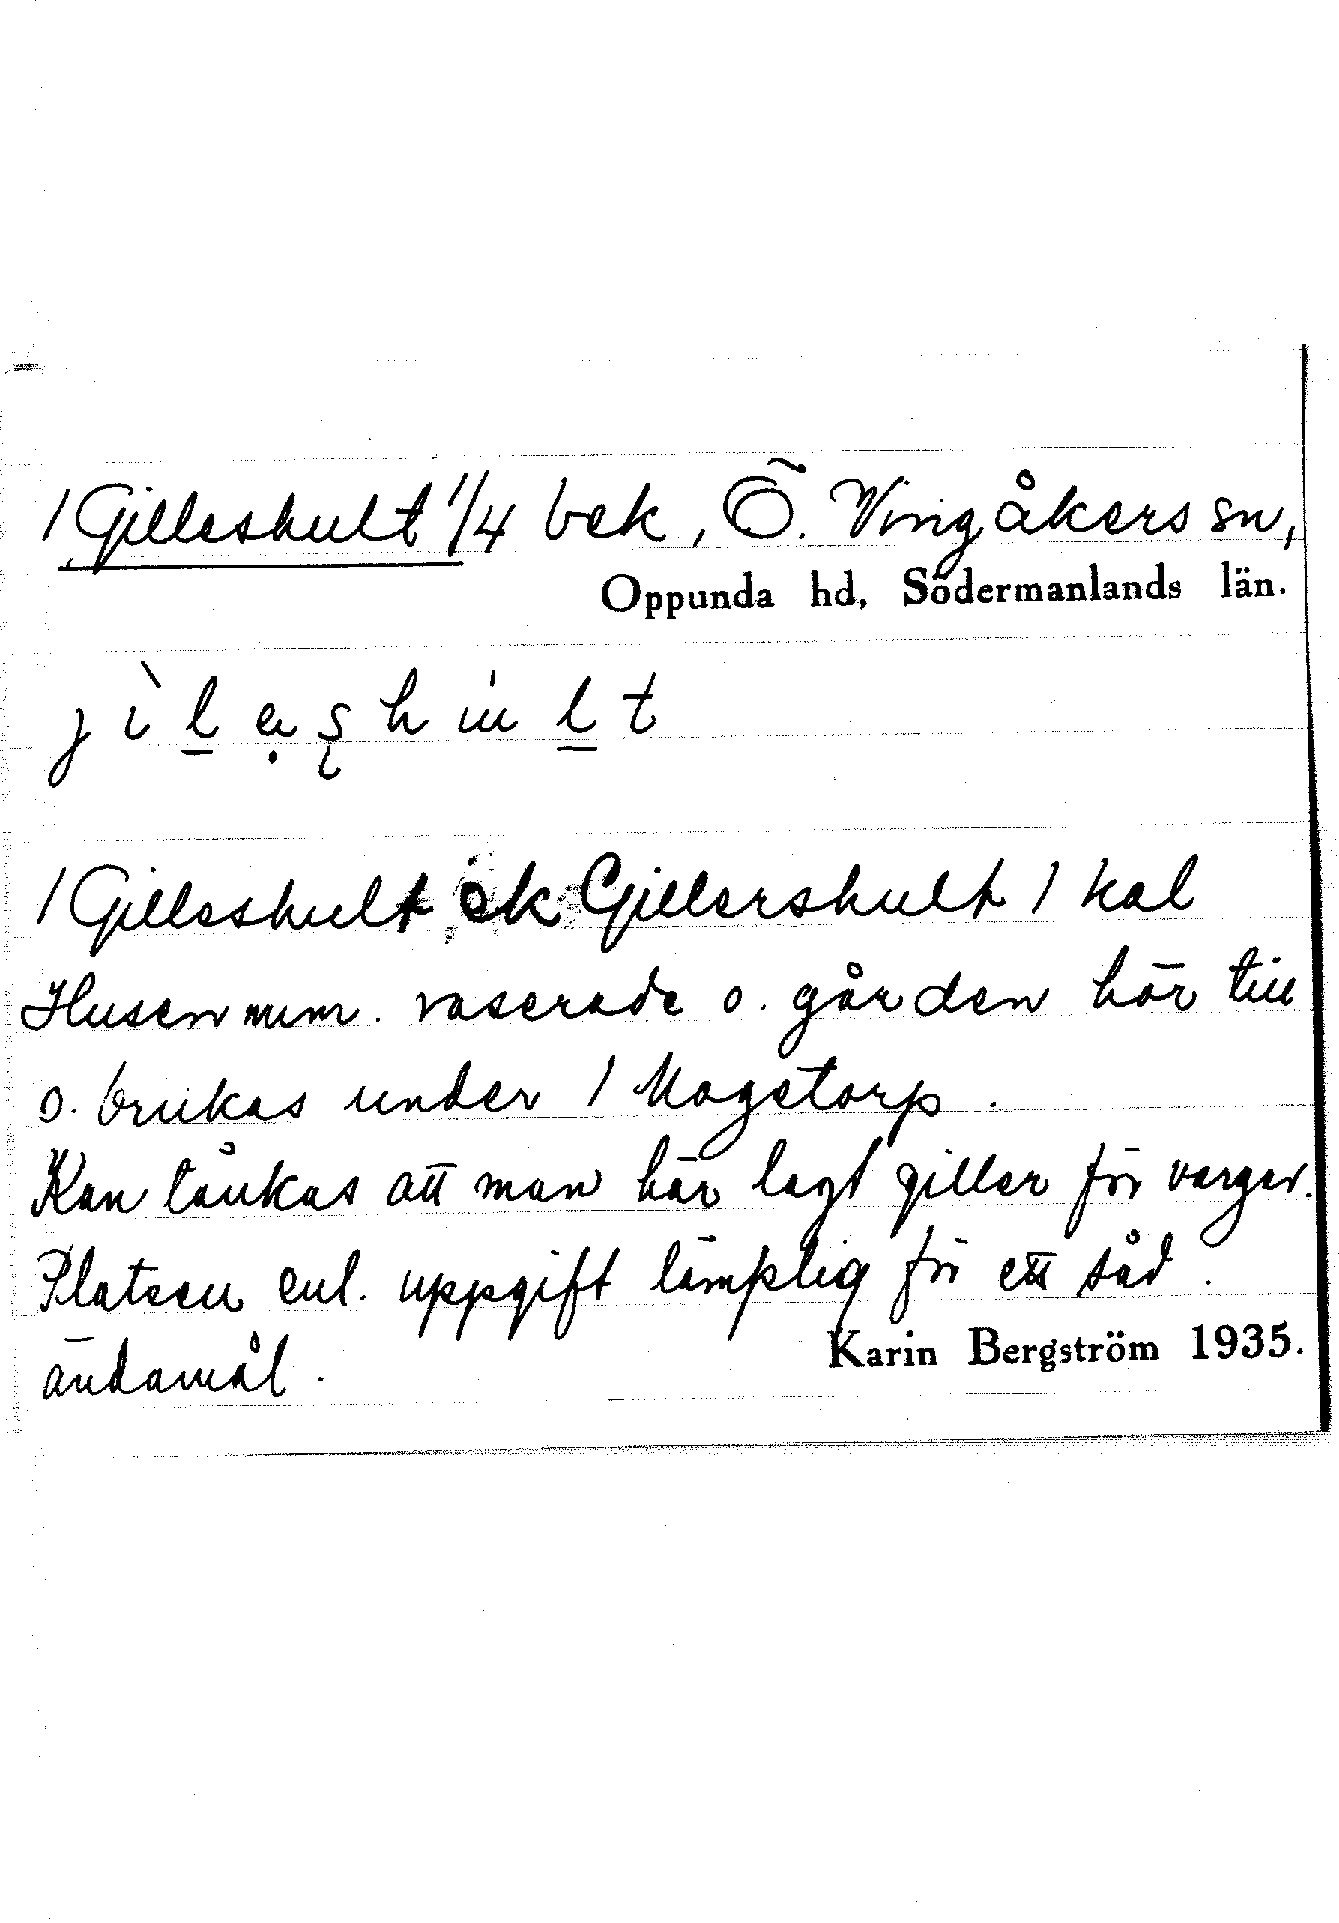 / Gilleshult 1/4 bek, Ö. Vingåkers sn,
Oppunda hd, Södermanlands län.
/ Gilleshult ek Gillershult / kal
Husen num. raserade o. gården hör till
o. brukas under / Mogetorp.
Kan tänkas att man här lagt giller för vargar.
Platsen enl. uppgift lämplig för ett såd.
ändamål.
Karin Bergström 1935.